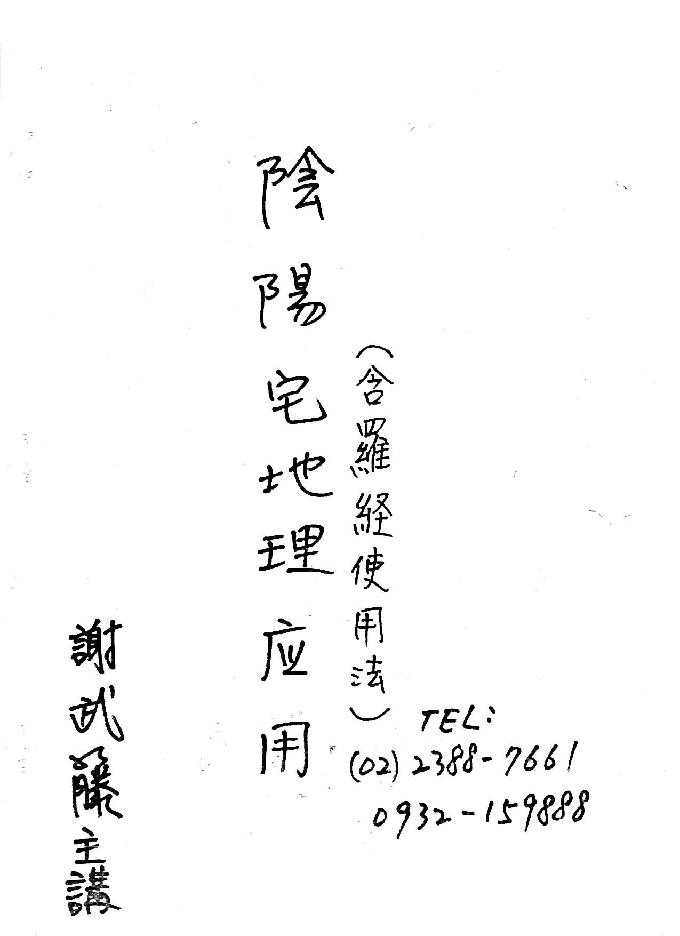 陰陽宅地理应用
（含羅経使用法）
TEL:
(02) 2388-7661
0932-159888
謝武籐主講